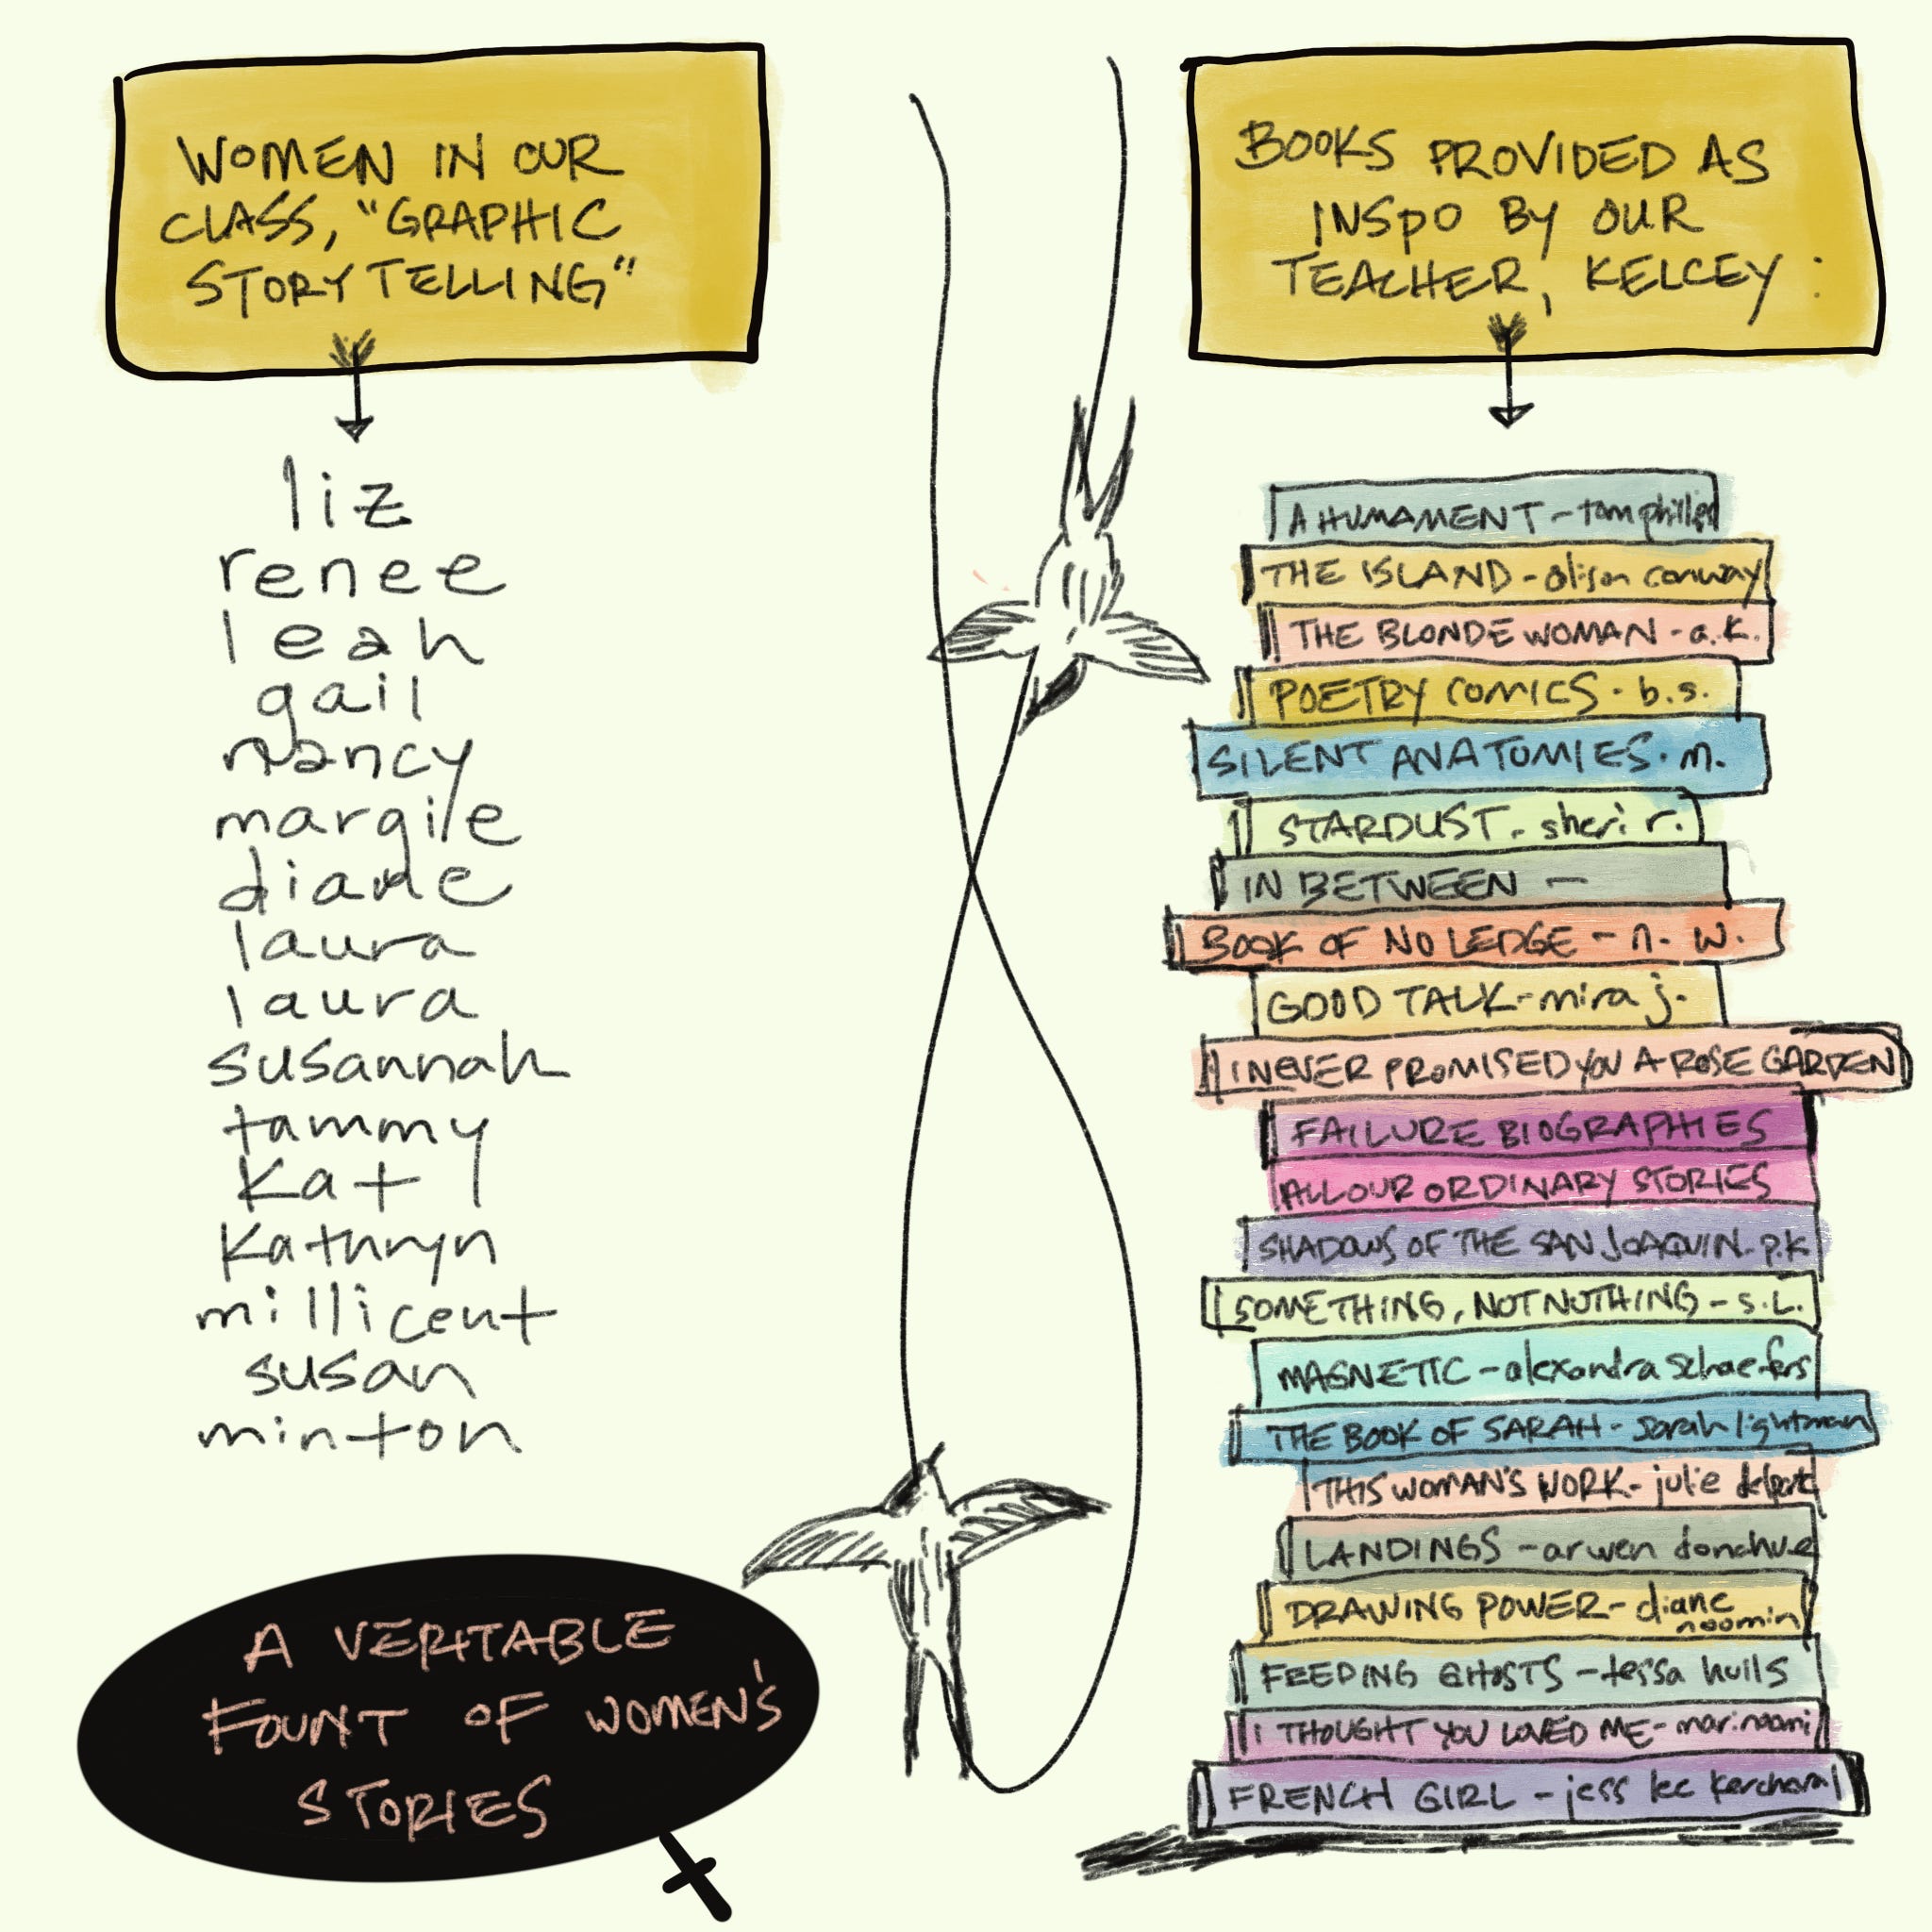 WOMEN IN OUR
CLASS, "GRAPHIC
STORYTELLING"
liz
renee
leah
gail
nancy
margie
diane
laura
laura
susannah
tammy
Kat
Kathryn
millicent
susan
minton
A VERITABLE
FOUNT OF WOMEN'S
STORIES
BOOKS PROVIDED AS
INSPO BY OUR
TEACHER, KELCEY:
A HUMAMENT - tom phillips
THE ISLAND - alison conway
THE BLONDE WOMAN - a.k.
POETRY COMICS · b.s.
SILENT ANATOMIES · m.
STARDUST - sheri r.
IN BETWEEN —
BOOK OF NO LEDGE - n. w.
GOOD TALK - mira j.
I NEVER PROMISED YOU A ROSE GARDEN
FAILURE BIOGRAPHIES
ALL OUR ORDINARY STORIES
SHADOWS OF THE SAN JOAQUIN - p.k
SOMETHING, NOT NOTHING - S.L.
MAGNETIC - alexandra schaefers
THE BOOK OF SARAH - sarah lightman
THIS WOMAN'S WORK - julie
LANDINGS - arwen donahue
DRAWING POWER - diane
noomin
FEEDING GHOSTS - tessa hulls
I THOUGHT YOU LOVED ME - marinaomi
FRENCH GIRL - jess lee